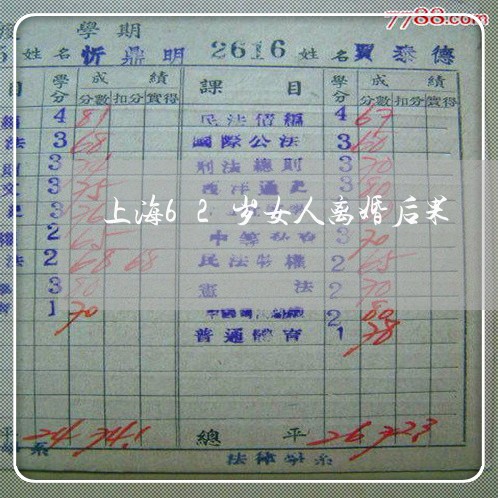 7788.com
學期
姓名 忻鼎明 2616 姓名 賈泰德
目 學分 成績 課目 學分 成績
分數 扣分 實得 分數 扣分 實得
4 81 民法債編 4 67
法 3 68 國際公法 3 60
3 刑法總則 3 70
3 75 西洋通史 3
3
2 65 3 70
法 2 68 68 民法物權 2 65
3 80 憲法 2 70
1 70 2 80
普通體育 1 78
上海62岁女人离婚后果
平 24 74.1 總平 26 72.3
系 法律學系